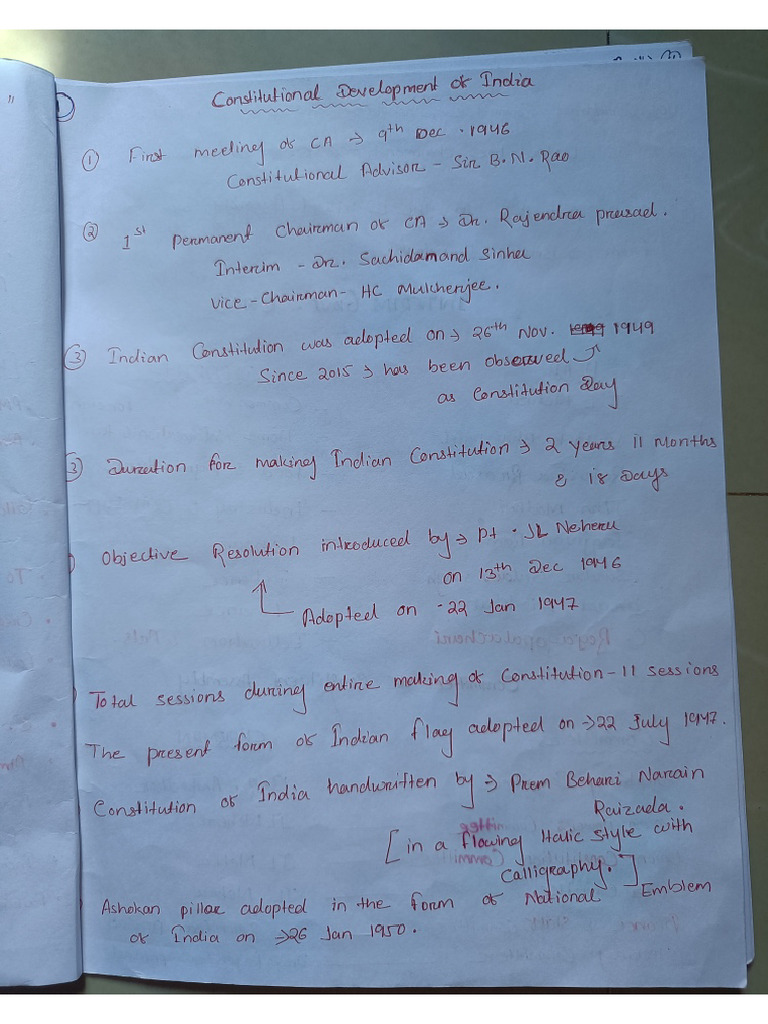 Constitutional Development of India
① First meeting of CA → 9th Dec. 1946
Constitutional Advisor - Sir B. N. Rao
② 1st permanent Chairman of CA → Dr. Rajendra prasad.
Interim - Dr. Sachidamand Sinha
Vice-Chairman- HC Mukherjee.
③ Indian Constitution was adopted on → 26th Nov. 1949
Since 2015 → has been observed
as Constitution Day
③ Duration for making Indian Constitution → 2 years 11 months
& 18 Days
Objective Resolution introduced by → Pt. JL Neheru
on 13th Dec 1946
Adopted on - 22 Jan 1947
Total sessions during entire making of Constitution - 11 sessions
The present form of Indian flag adopted on → 22 July 1947.
Constitution of India handwritten by → Prem Behari Narain
Raizada.
[in a flowing Italic style with
Calligraphy.]
Ashokan pillar adopted in the form of National Emblem
of India on → 26 Jan 1950.